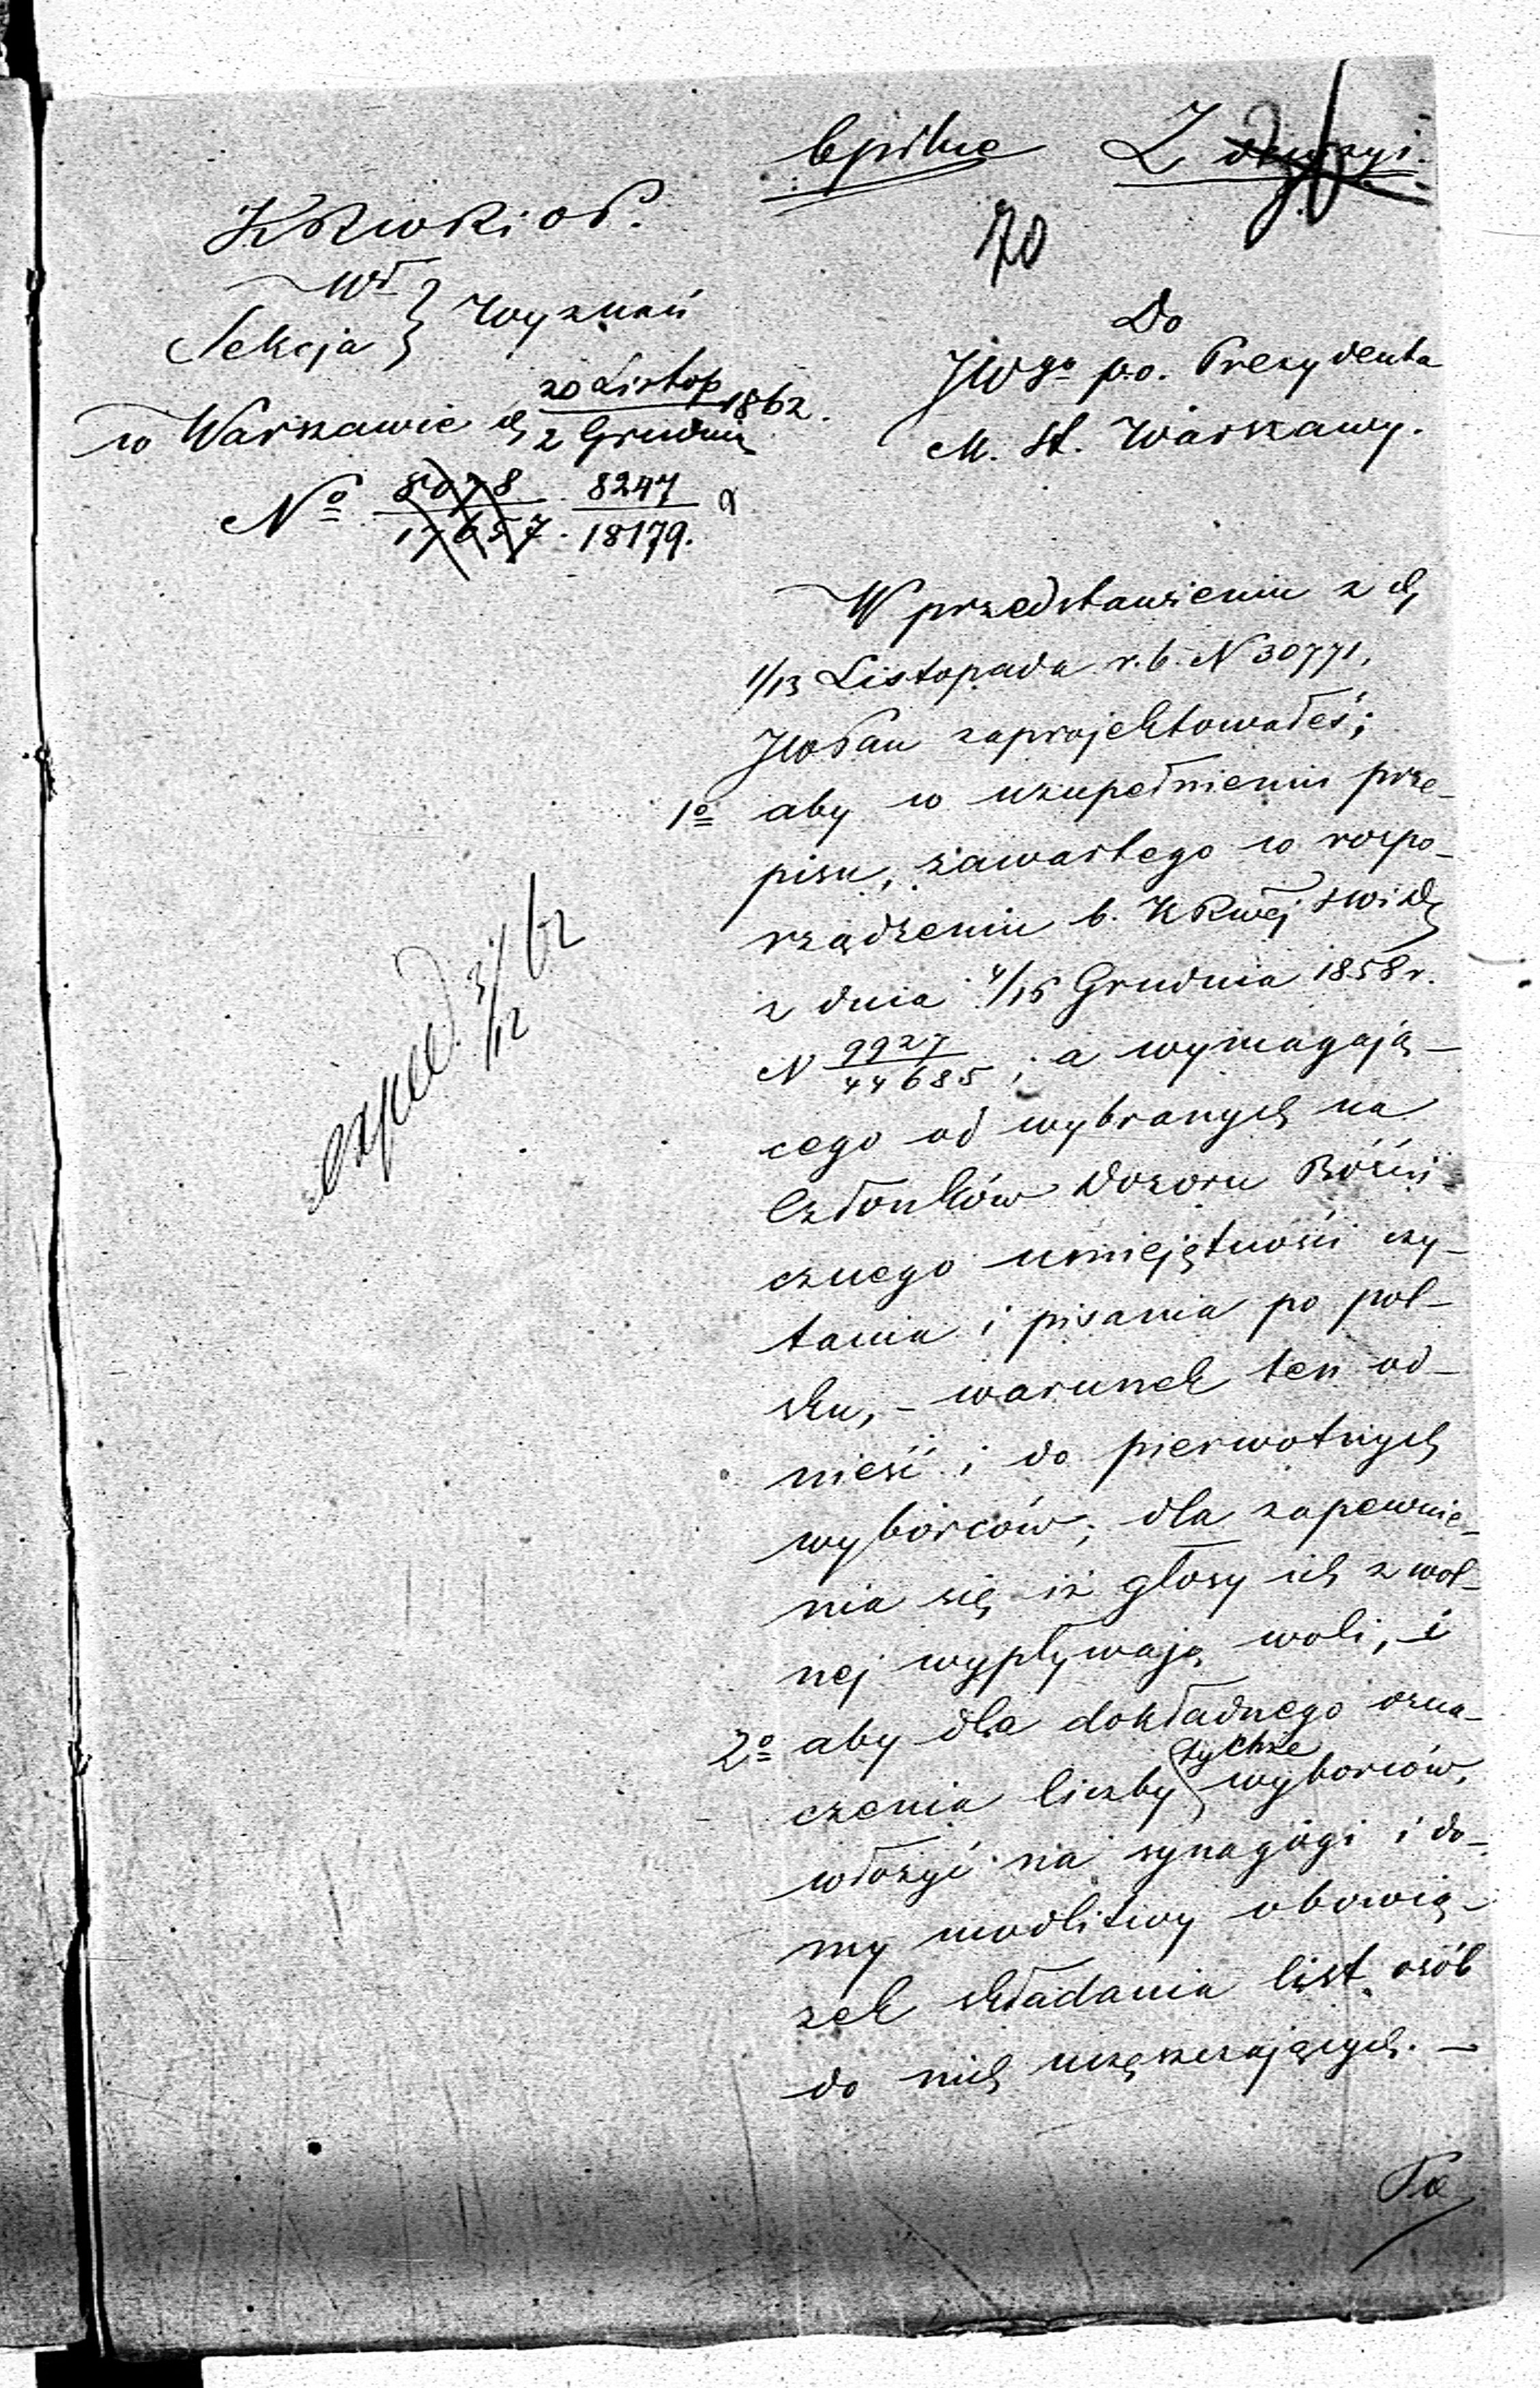 Spilne Z
70
KRWRiOP.
Wł
Sekcja } Wyznań
w Warszawie d. 20 Listop / 2 Grudnia 1862.
No 8078 / 17657. 8247 / 18179.
Do
JWgo p.o. Prezydenta
M. St. Warszawy.
W przedstawieniu z d.
1/13 Listopada r. b. N 30771,
JWPan zaprojektowałeś;
1o aby w uzupełnieniu prze-
pisu, zawartego w rozpo-
rządzeniu b. KRwej SWiD
z dnia 4/16 Grudnia 1858 r.
N 9927 / 44685; a wymagają-
cego od wybranych na
Członków Dozoru Bóżni-
cznego umiejętności czy-
tania i pisania po pol-
sku, - warunek ten od-
nieść i do pierwotnych
wyborców; dla zapewnie-
nia się iż głosy ich z wol-
nej wypływają woli, i
2o aby dla dokładnego ozna-
czenia liczby tychże wyborców,
włożyć na synagogi i do-
my modlitwy obowią-
zek składania list osób
do nich uczęszczających. -
Po
exped. 3/12 62